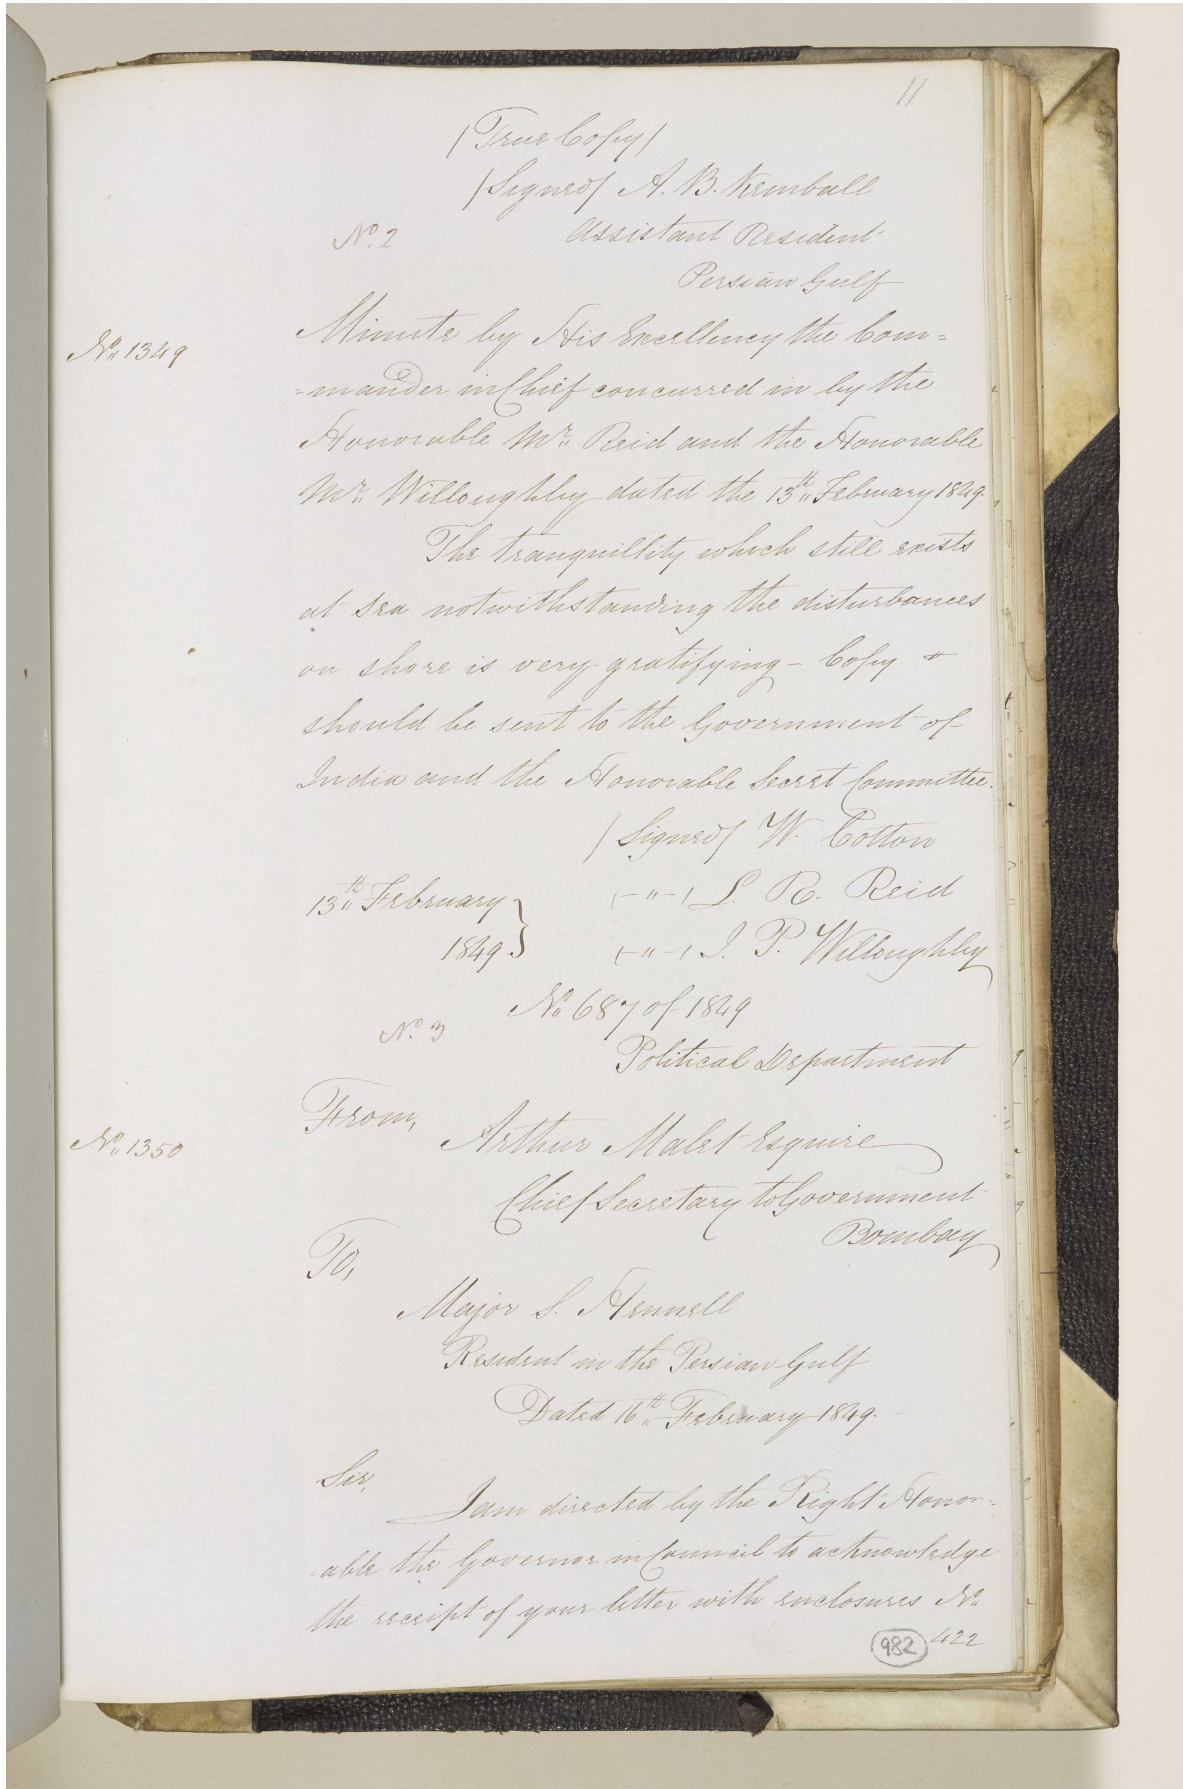 11
(True Copy)
(Signed) A. B. Kemball
No. 2
Assistant Resident
Persian Gulf
No. 1349
Minute by His Excellency the Com=
=mander in Chief concurred in by the
Honorable Mr. Reid and the Honorable
Mr. Willoughby dated the 13th February 1849.
The tranquillity which still exists
at Sea notwithstanding the disturbances
on shore is very gratifying - Copy
should be sent to the Government of
India and the Honorable Secret Committee.
(Signed) W. Cotton
13th February
1849 }
(-"-) L. R. Reid
(-"-) J. P. Willoughby
No. 687 of 1849
No. 3
Political Department
No. 1350
From,
Arthur Malet Esquire
Chief Secretary to Government
Bombay
To,
Major S. Hennell
Resident in the Persian Gulf
Dated 16th February 1849.
Sir,
I am directed by the Right Honor=
=able the Governor in Council to acknowledge
the receipt of your letter with enclosures No.
982 422